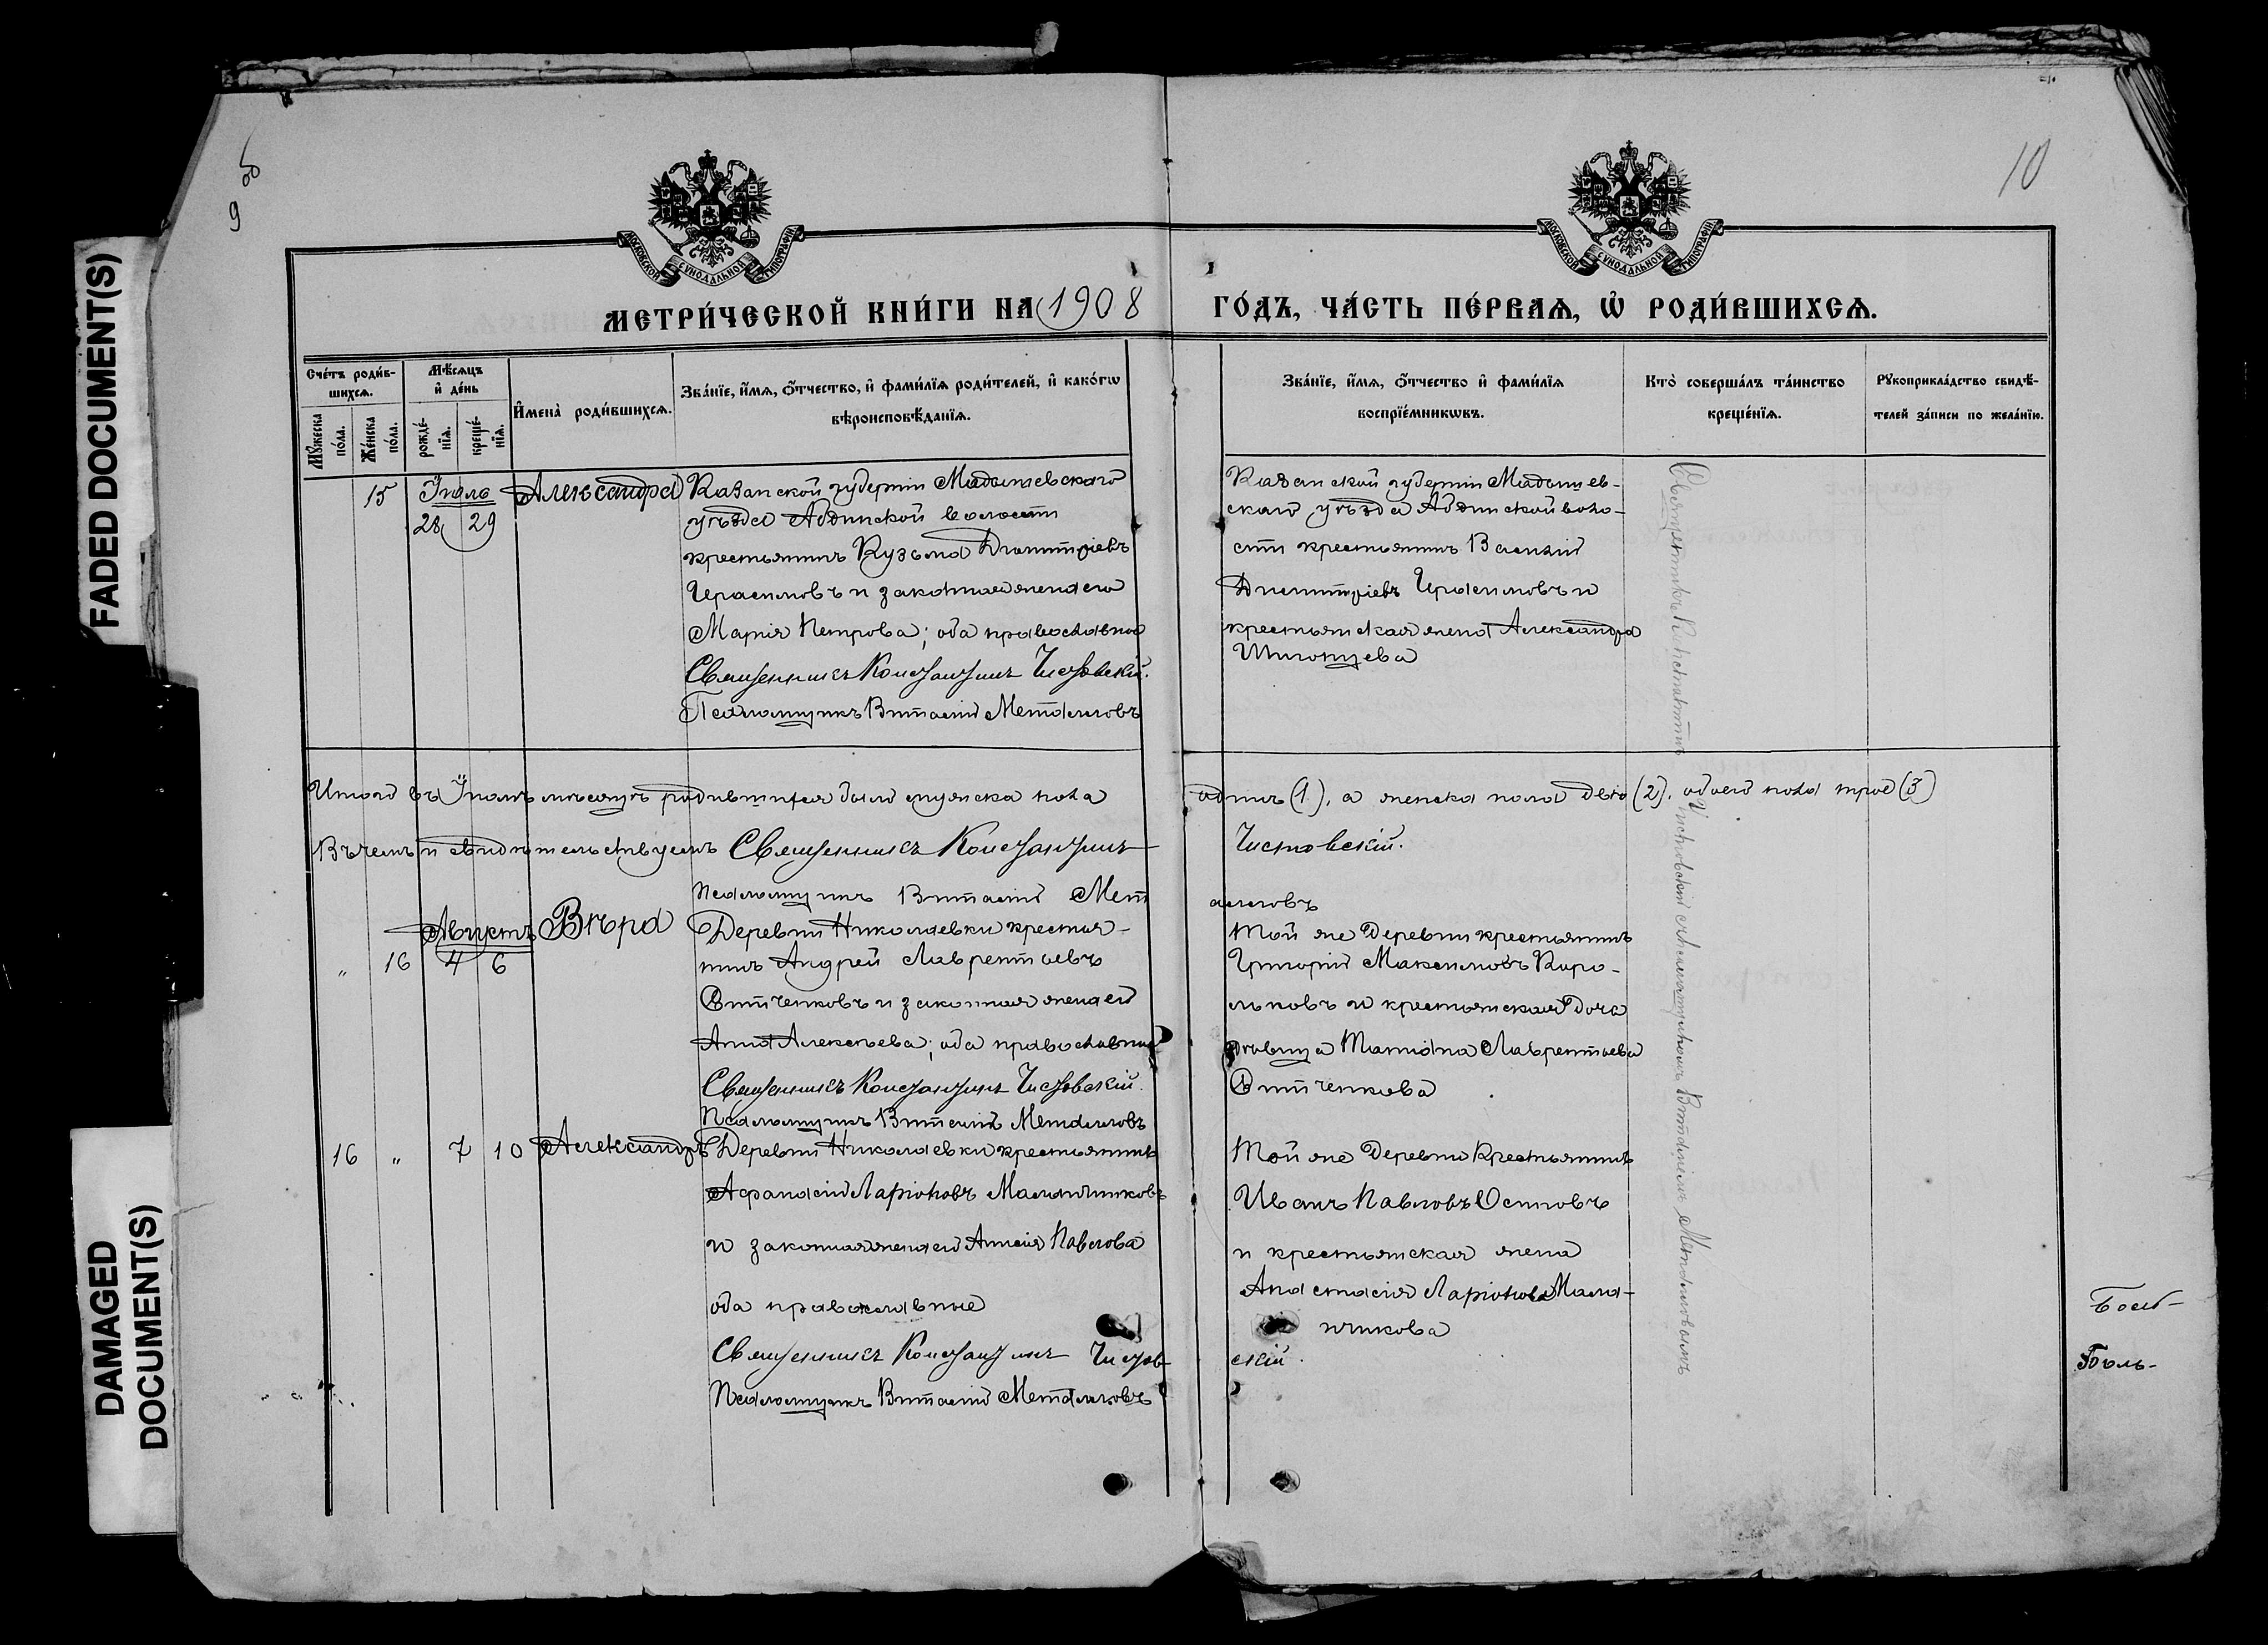 FADED DOCUMENT(S)
DAMAGED
DOCUMENT(S)
9 об
10
МОСКОВСКОЙ СѴНОДАЛЬНОЙ ТИПОГРАФІИ
МОСКОВСКОЙ СѴНОДАЛЬНОЙ ТИПОГРАФІИ
МЕТРИ́ЧЕСКОЙ КНИ́ГИ НА 1908 ГО́ДЪ, ЧА́СТЬ ПЕ́РВАѦ, Ѡ҆ РОДИ́ВШИХСѦ.
Сче́тъ роди́в-
шихсѧ.
Мꙋ́жеска
по́ла.
Же́нска
по́ла.
Мѣ́сѧцъ
и҆ де́нь
рожде́-
нїѧ.
креще́-
нїѧ.
И҆мена̀ роди́вшихсѧ.
Зва́нїе, и҆́мѧ, ѻ҆́тчество, и҆ фами́лїѧ роди́телей, и҆ како́гѡ
вѣроисповѣ́данїѧ.
Зва́нїе, и҆́мѧ, ѻ҆́тчество и҆ фами́лїѧ
воспрїе́мникѡвъ.
Кто̀ соверша́лъ та́инство
креще́нїѧ.
Рꙋкоприкла́дство свидѣ́-
телей за́писи по жела́нїю.
15 Іюль Александра Казанской губерніи Мадышевскаго
28 29 уѣзда Абдинской волости
крестьянинъ Кузьма Димитріевъ
Герасимовъ и законная жена его
Марія Петрова; оба православные
Священникъ Константинъ Чистовскій.
Псаломщикъ Виталій Металловъ
Казанской губерніи Мадышев-
скаго уѣзда Абдинской воло-
сти крестьянинъ Василій
Димитріевъ Герасимовъ и
крестьянская жена Александра
Священникъ Константинъ Чистовскій съ псаломщикомъ Виталіемъ Металловымъ
Итого въ Іюлѣ мѣсяцѣ родившихся было мужска пола одинъ (1), а женска пола двѣ (2). обоего пола трое (3)
Въ чемъ и свидѣтельствуемъ Священникъ Константинъ Чистовскій.
Псаломщикъ Виталій Металловъ
Августъ Вѣра Деревни Николаевки крестья-
" 16 4 6 нинъ Андрей Лаврентьевъ
и законная жена его
Анна Алексѣева; оба православные
Священникъ Константинъ Чистовскій.
Псаломщикъ Виталій Металловъ
Той же деревни крестьянинъ
Григорій Максимовъ Киро-
льковъ и крестьянская доче
рь дѣвица Татіана Лаврентьева
16 " 7 10 Александръ Деревни Николаевки крестьянинъ
Афанасій Ларіоновъ Маланчиковъ
и законная жена его Анисія Павлова
оба православные
Священникъ Константинъ Чистов-
скій.
Псаломщикъ Виталій Металловъ
Той же деревни крестьянинъ
Иванъ Павловъ Осиповъ
и крестьянская жена
Анастасія Ларіонова Малан-
чикова